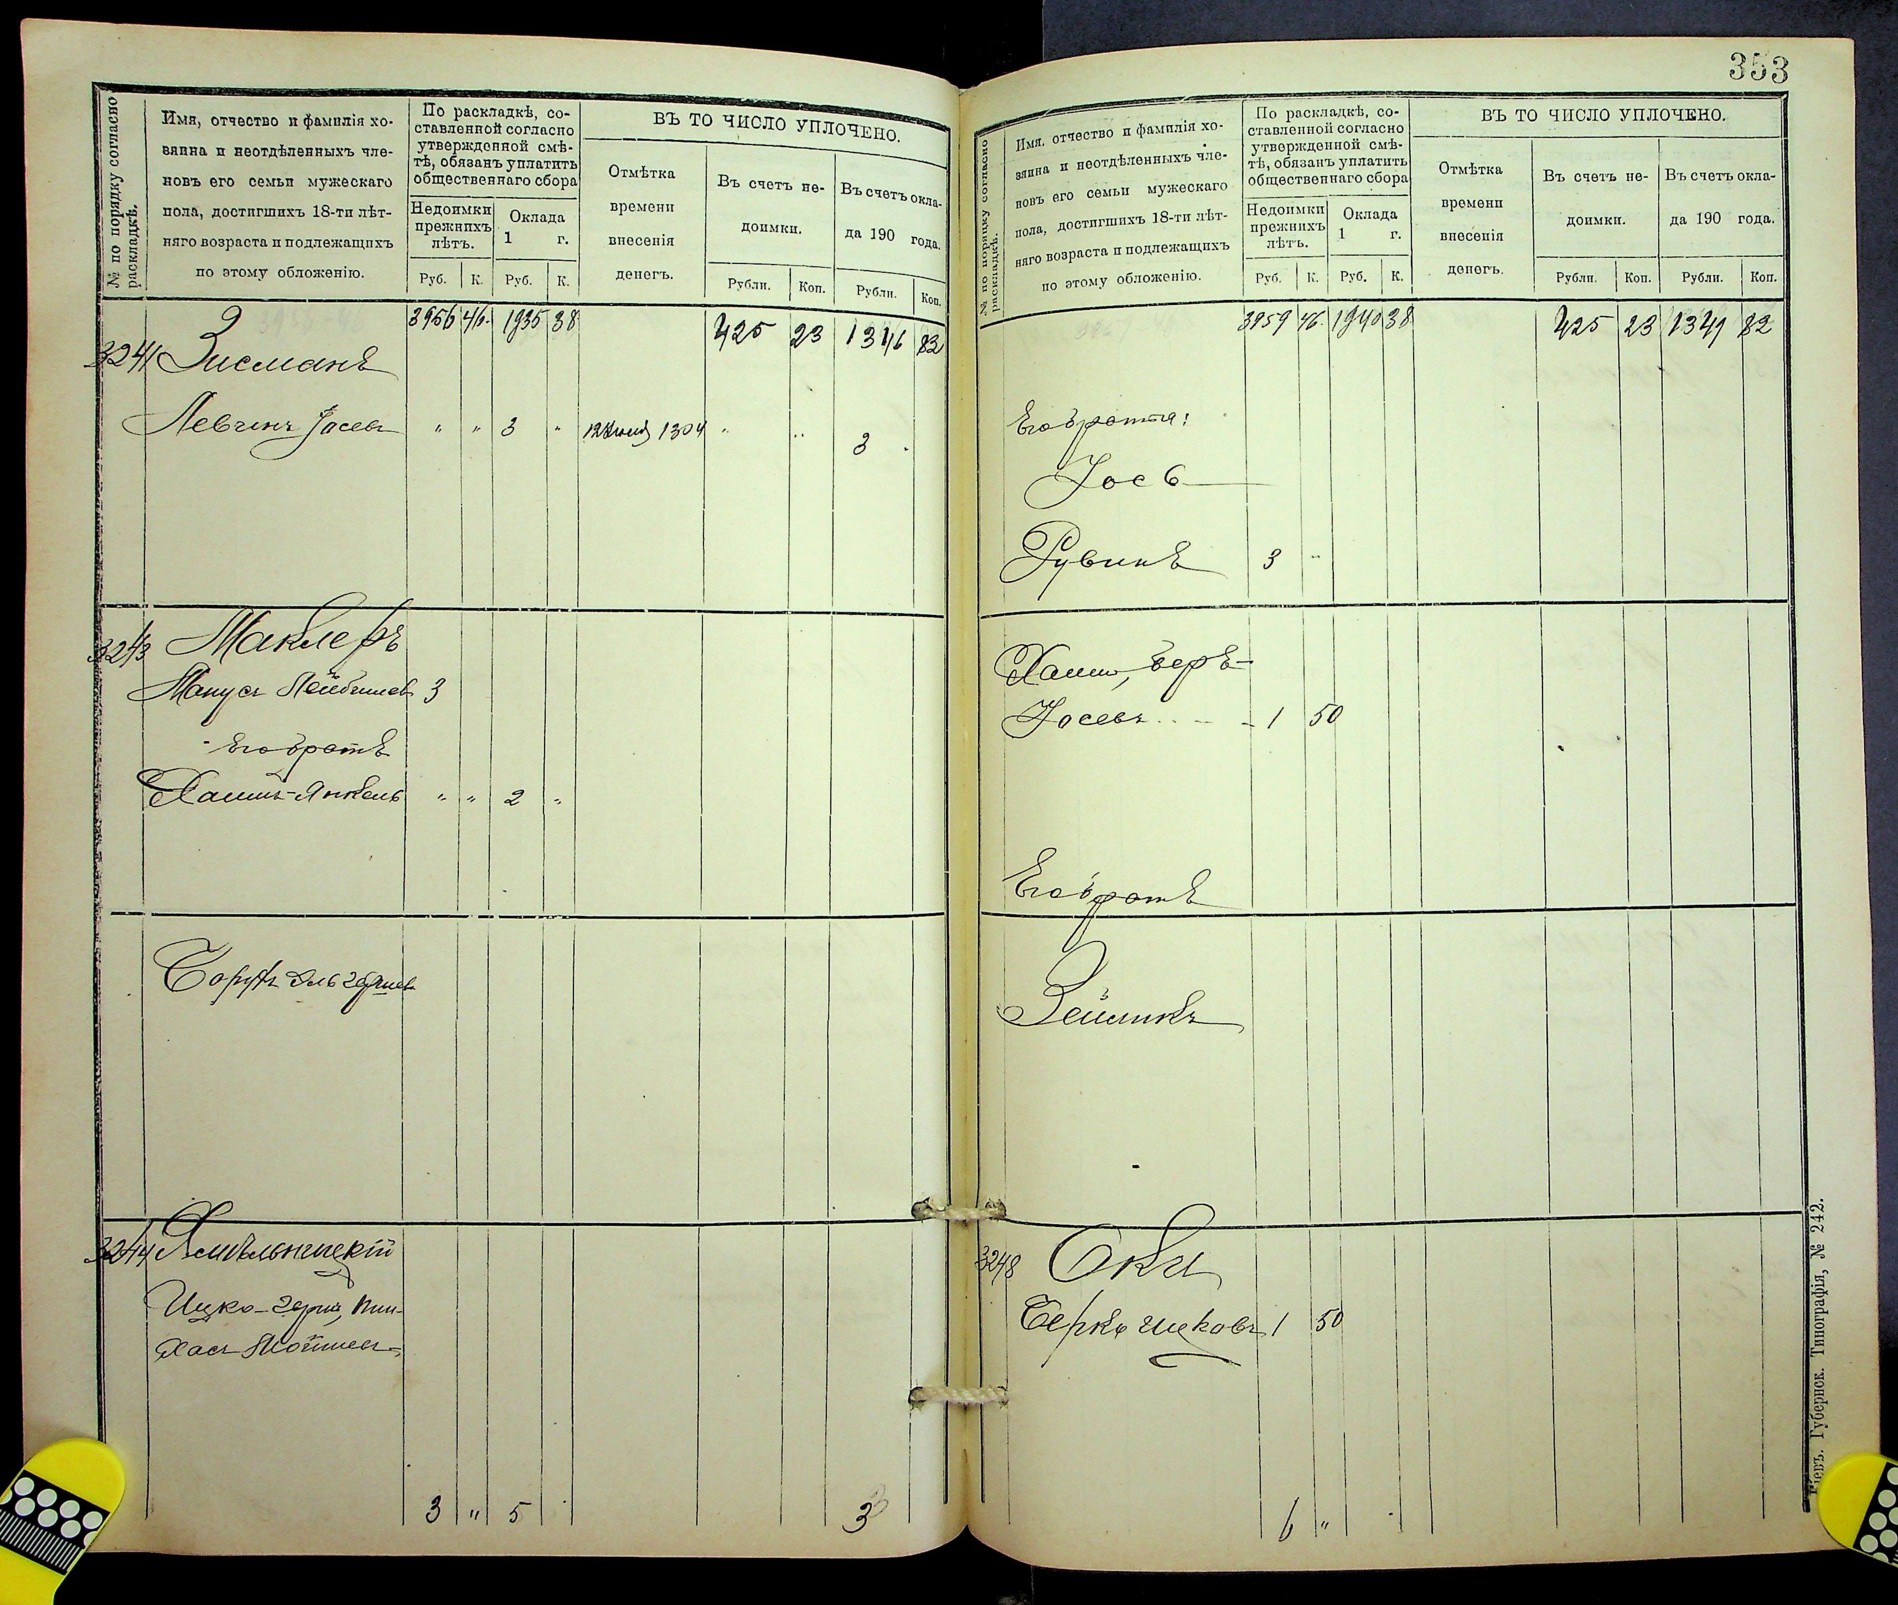 353
№ по порядку согласно раскладкѣ.
Имя, отчество и фамилія хо-
зяина и неотдѣленныхъ чле-
новъ его семьи мужескаго
пола, достигшихъ 18-ти лѣт-
няго возраста и подлежащихъ
по этому обложенію.
По раскладкѣ, со-
ставленной согласно
утвержденной смѣ-
тѣ, обязанъ уплатить
общественнаго сбора
Недоимки
прежнихъ
лѣтъ.
Оклада
1 г.
Руб. К. Руб. К.
ВЪ ТО ЧИСЛО УПЛОЧЕНО.
Отмѣтка
времени
внесенія
денегъ.
Въ счетъ не-
доимки.
Въ счетъ окла-
да 190 года.
Рубли. Коп. Рубли. Коп.
3956 46. 1935 38 425 23 1346 82
3241 Зисманъ
Левчикъ Іосевъ " " 3 " 12 1904 " " 3
3243 Маклеръ
Манусъ Лейбишев 3
Его братъ
Хаимъ-Янкель " " 2 "
Борухъ Эль Гершев
3244 Хмѣльницкій
Ицко-Герш, Пин-
хасъ Мошков
3 " 5 3
№ по порядку согласно раскладкѣ.
Имя, отчество и фамилія хо-
зяина и неотдѣленныхъ чле-
новъ его семьи мужескаго
пола, достигшихъ 18-ти лѣт-
няго возраста и подлежащихъ
по этому обложенію.
По раскладкѣ, со-
ставленной согласно
утвержденной смѣ-
тѣ, обязанъ уплатить
общественнаго сбора
Недоимки
прежнихъ
лѣтъ.
Оклада
1 г.
Руб. К. Руб. К.
ВЪ ТО ЧИСЛО УПЛОЧЕНО.
Отмѣтка
времени
внесенія
денегъ.
Въ счетъ не-
доимки.
Въ счетъ окла-
да 190 года.
Рубли. Коп. Рубли. Коп.
3959 46. 1940 38 425 23 1349 82
Его братья:
Іось
Рувинъ 3 "
Хаимъ, Беръ-
Іосевъ 1 50
Его братъ
Зейликъ
3248 Оки
Берко Ицковъ 1 50
6 "
Кіевъ. Губернск. Типографія, № 242.